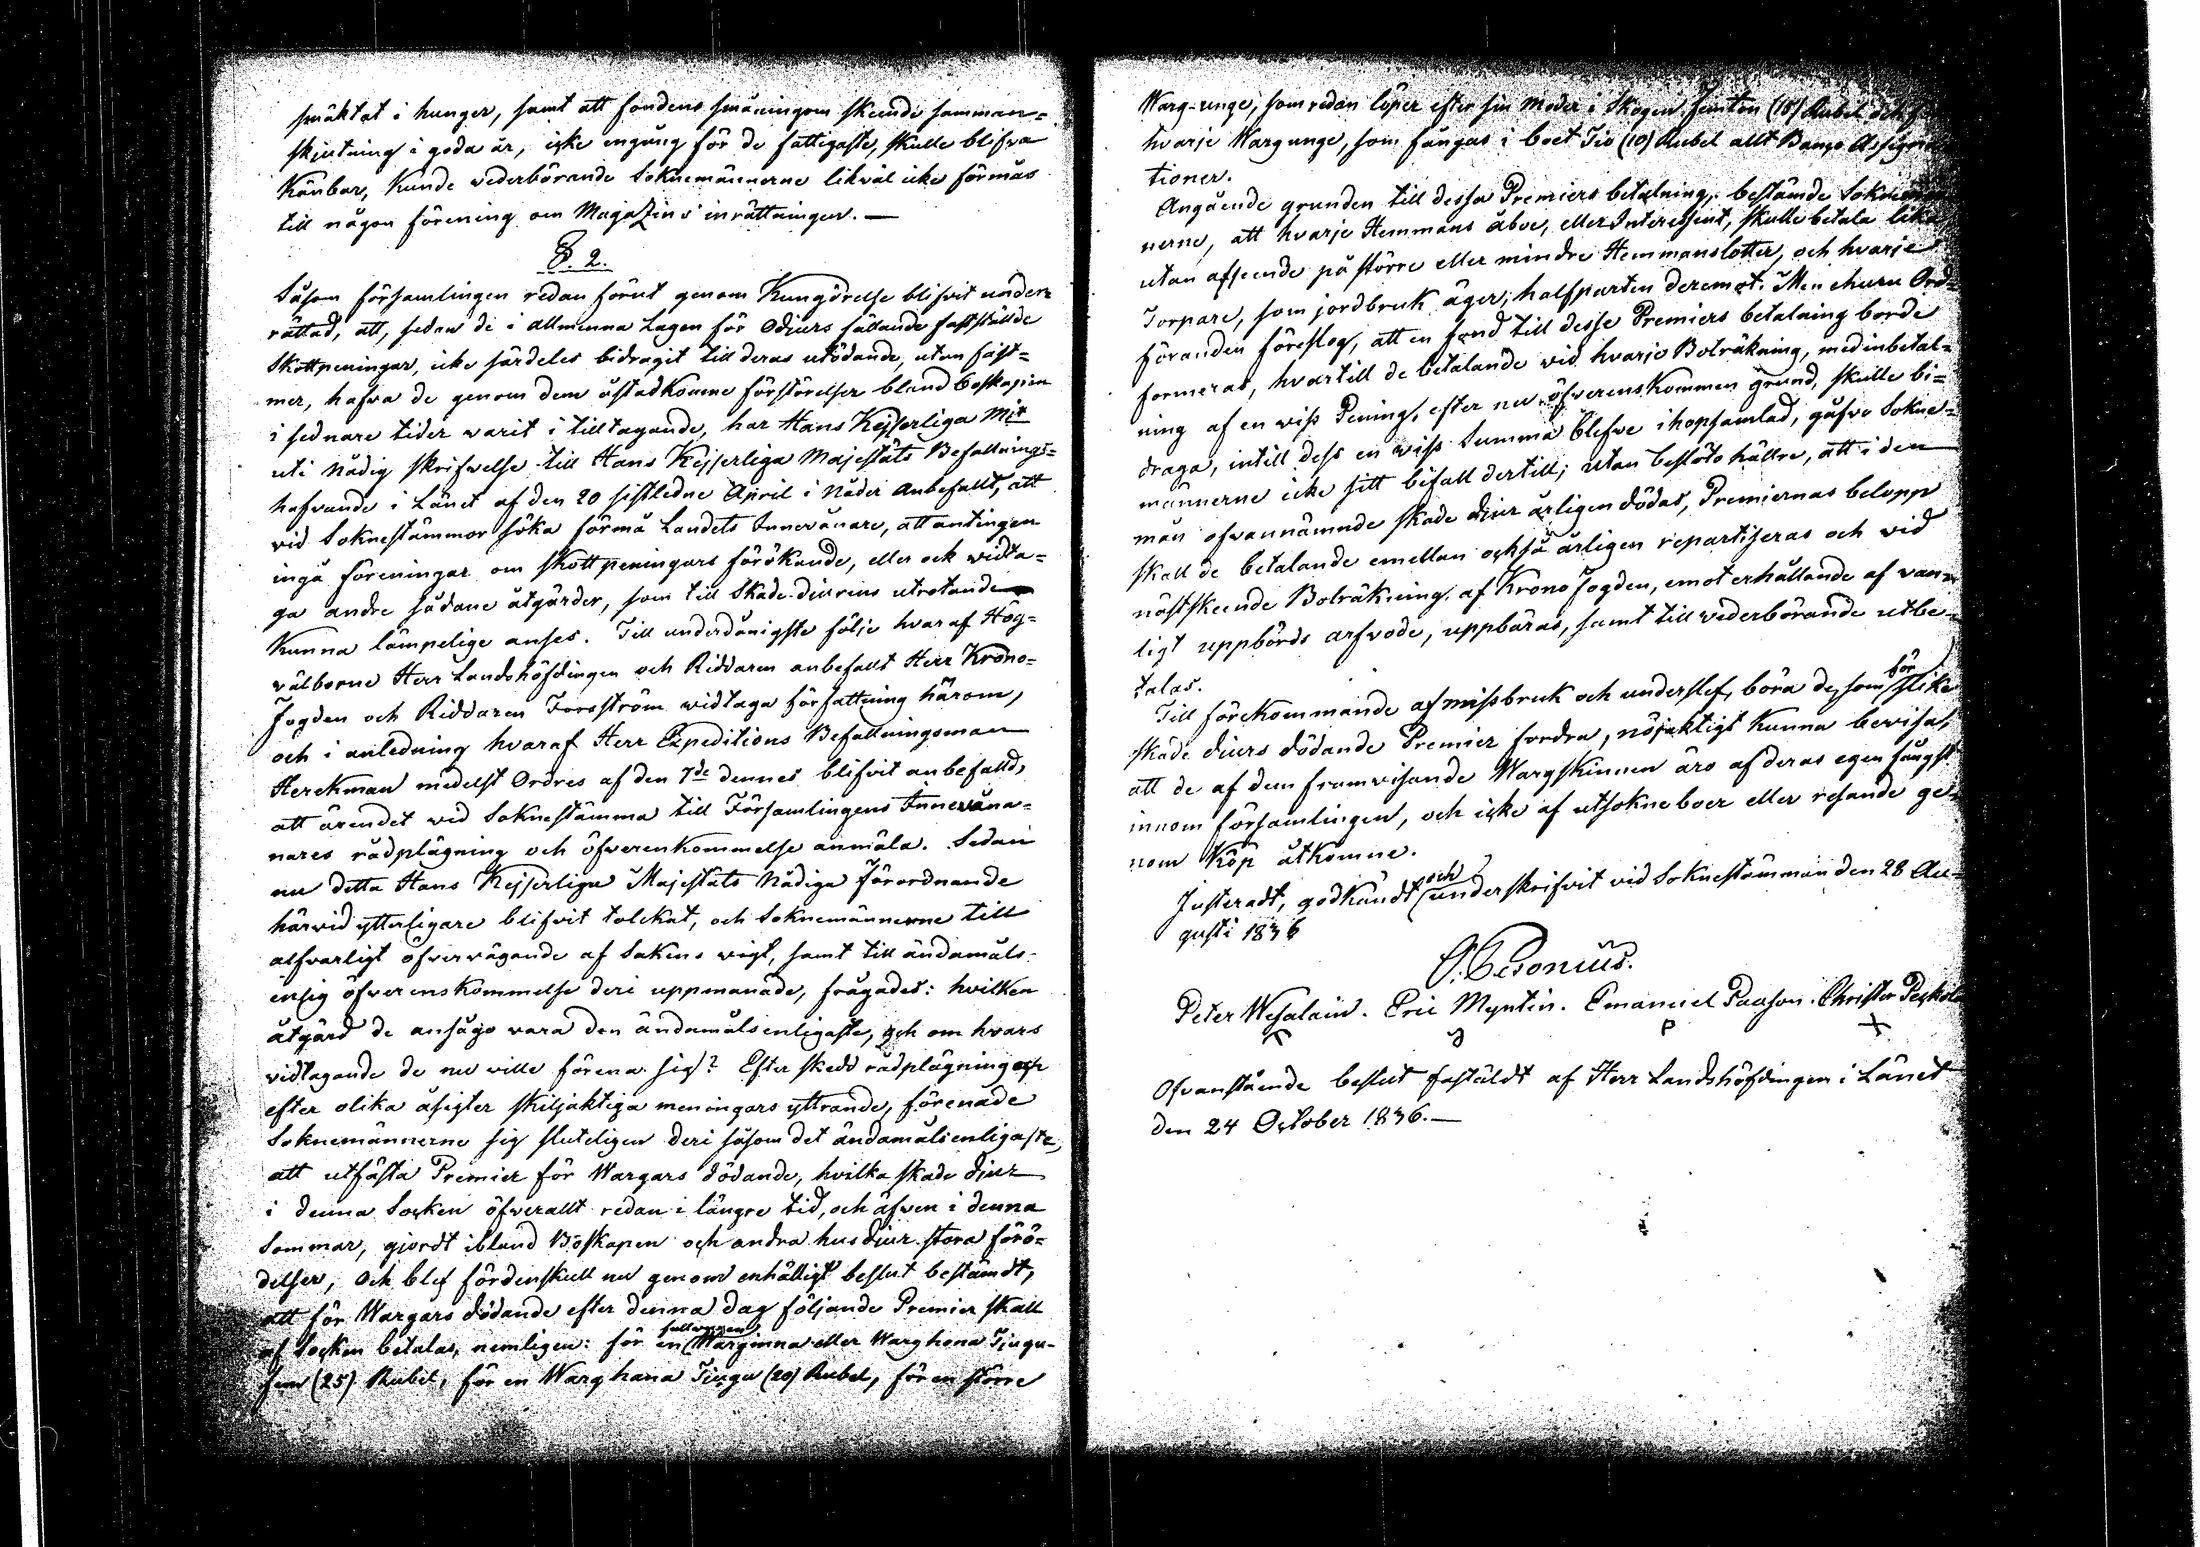 smäktat i hunger, samt att fondens småningom skeende samman=
skjutning i goda år, icke engång för de fattigaste, skulle blifva
Känbar, Kunde vederbörande Soknemännerne likväl icke förmås
till någon förening om Magazins inrättningen. —
§. 2.
Såsom församlingen redan förut genom Kungörelse blifvit under=
rättad, att, sedan de i allmenna Lagen för Odjurs fällande fastställde
Skottpeningar, icke särdeles bidragit till deras utödande, utan fast=
mer, hafva de genom dem åstadkomne förstörelser bland boskapen
i sednare tider varit i tilltagande, har Hans Kejserliga Mjt
uti Nådig skrifvelse till Hans Kejserliga Majestäts Befallnings=
hafvande i Länet af den 20 sistledne April i Nåder anbefallt, att
vid Soknestämmor söka förmå Landets Innevånare, att antingen
ingå föreningar om skottpeningars förökande, eller ock widta=
ga andre sådane åtgärder, som till Skade-djurens utrotande
Kunna lämpelige anses. Till underdånigste följe hvaraf Hög=
välborne Herr Landshöfdingen och Riddaren anbefallt Herr Krono=
Fogden och Riddaren Forsström widtaga författning härom,
och i anledning hvaraf Herr Expeditions Befallningsman
Herckman medelst Ordres af den 7de dennes blifvit anbefalld,
att ärendet vid Soknestämma till Församlingens Innevåna=
nares rådplägning och öfverenkommelse anmäla. Sedan
nu detta Hans Kejserliga Majestäts Nådiga förordnande
härvid ytterligare blifvit tolckat, och Soknemännerne till
alfvarligt öfvervägande af Sakens vigt, samt till ändamåls-
enlig öfverenskommelse deri uppmanade, frågades: hvilken
åtgärd de ansågo vara den ändamålsenligaste, och om hvars
vidtagande de nu ville förena sig? Efter skedd rådplägning och
efter olika åsigter skiljaktiga meningars yttrande, förenade
Soknemännerne sig sluteligen deri såsom det ändamålsenligaste,
att utfästa Premier för Wargars dödande, hvilka skade djur
i denna Socken öfverallt redan i längre tid, och äfven i denna
Sommar, gjordt ibland Boskapen och andra husdjur stora förö=
delser, Och blef fördenskull nu genom enhälligt beslut bestämdt,
att för Wargars dödande efter denna dag följande Premier skall
af Socken betalas, nemligen: för en fullvuxen Warginna eller Warg hona Tjugu-
fem (25) Rubel, för en Warg hana Tjugu (20) Rubel, för en större
Warg-unge, som redan löper efter sin Moder i Skogen Femton (15) Rubel och f
hvarje Wargunge, som fångas i boet Tio (10) Rubel allt Banco Assigna
tioner.
Angående grunden till dessa Premiers betalning, bestämde Soknemän
nerne, att hvarje Hemmans åboe, eller Interessent, skulle betala lika
utan afseende på större eller mindre Hemmanslotter, och hvarje
Torpare, som jordbruk äger, halfparten deremot. Men ehuru Ord=
föranden föreslog, att en fond till desse Premiers betalning borde
formeras, hvartill de betalande wid hvarje Bolräkning, med inbetal=
ning af en wiss Pening, efter nu öfverenskommen grund, skulle bi=
draga, intill dess en wiss Summa blefve ihopsamlad, gåfvo Sokne=
männerne icke sitt bifall dertill; utan beslöto hällre, att i den
mån ofvannämnde skade djur årligen dödas, Premiernas belopp
skall de betalande emellan också årligen repartiseras och wid
nästskeende Bolräkning af Krono Fogden, emot erhållande af van=
ligt uppbörds arfvode, uppbäras, samt till wederbörande utbe=
talas.
Till förekommande af missbruk och underslef, böra de, som för slike
skade djurs dödande Premier fordra, nöjaktigt Kunna bevisa,
att de af dem framvisande Wargskinnen äro af deras egen fångst
innom församlingen, och icke af utsokneboer eller resande ge=
nom Köp åtkomne.
Justeradt, godkändt och underskrifvit vid Soknestämman den 28 Au=
gusti 1836
Peter Wesalain. Eric Myntin. Emanuel Paason. Christer Peskola
Ofvanstående beslut fastäldt af Herr Landshöfdingen i Länet
den 24 October 1836. —